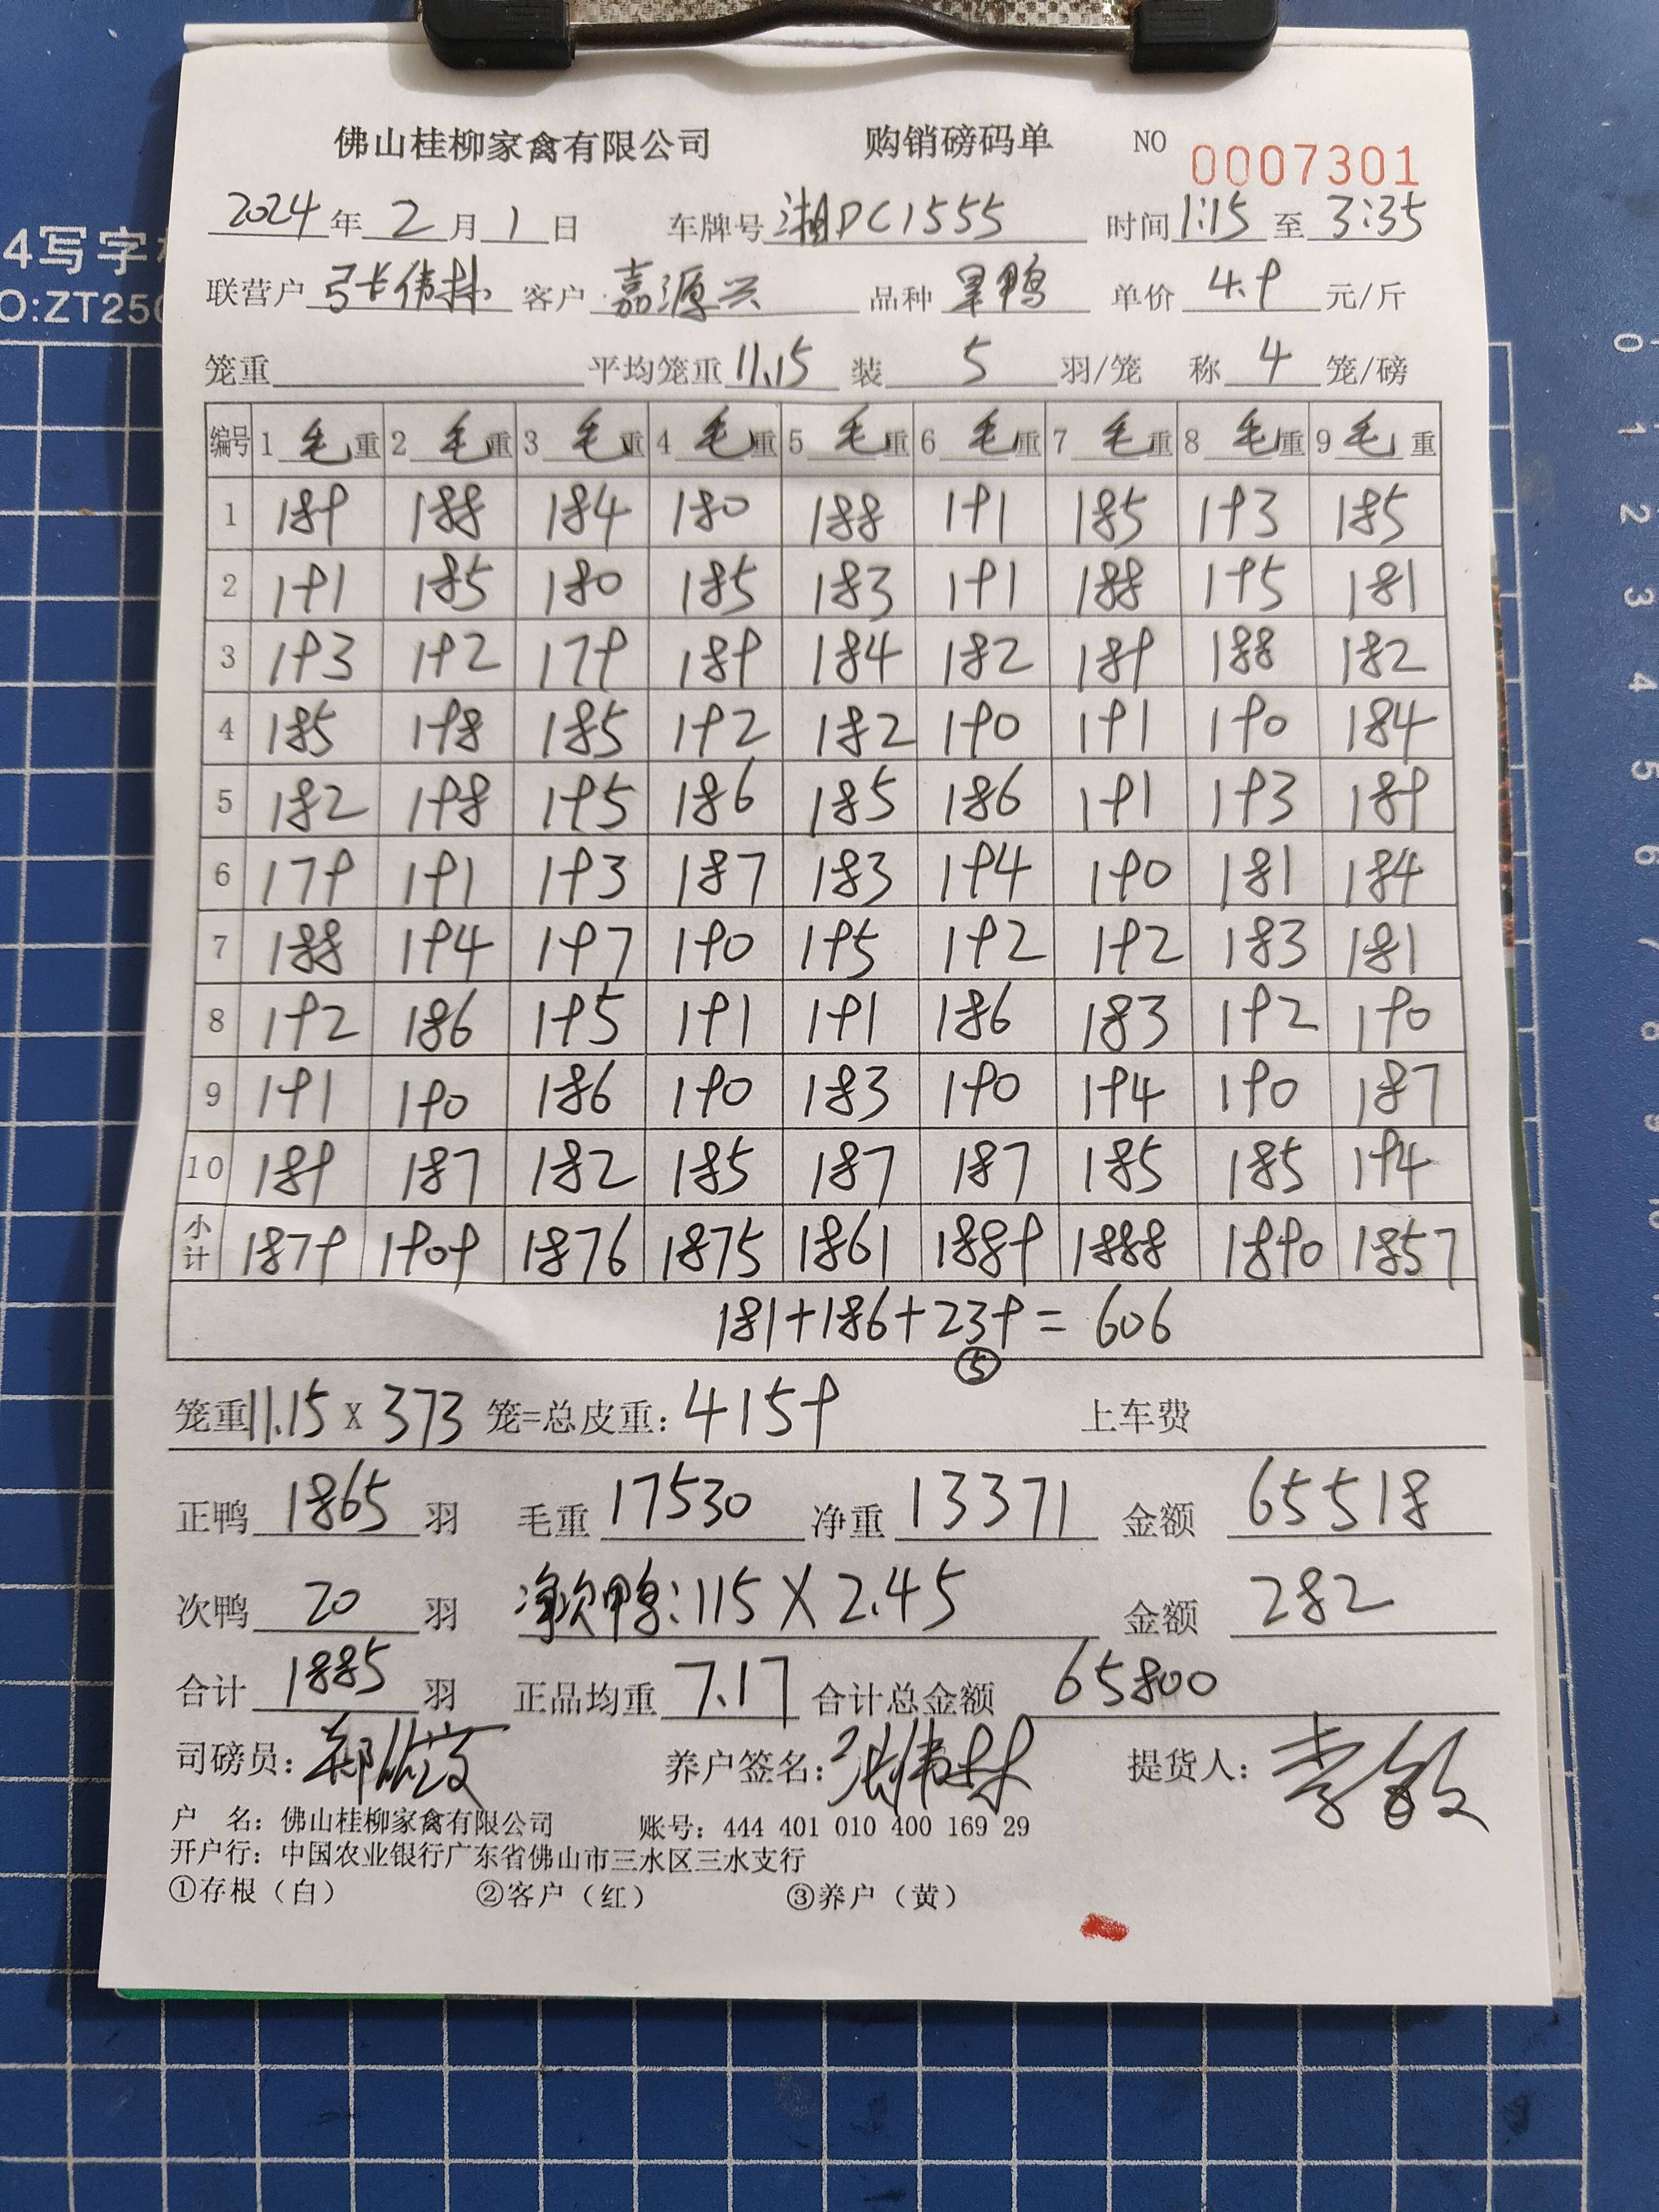 佛山桂柳家禽有限公司 购销磅码单 NO 0007301
2024年2月1日 车牌号 湘DC1555 时间 1:15 至 3:35
联营户 张伟林 客户 嘉源兴 品种 旱鸭 单价 4.9 元/斤
笼重 平均笼重 11.15 装 5 羽/笼 称 4 笼/磅
编号 1 毛重 2 毛重 3 毛重 4 毛重 5 毛重 6 毛重 7 毛重 8 毛重 9 毛重
1 189 188 184 180 188 191 185 193 185
2 191 185 180 185 183 191 188 195 181
3 193 192 179 189 184 182 189 188 182
4 185 198 185 192 182 190 191 190 184
5 182 198 195 186 185 186 191 193 189
6 179 191 193 187 183 194 190 181 184
7 188 194 197 190 195 192 192 183 181
8 192 186 195 191 191 186 183 192 190
9 191 190 186 190 183 190 194 190 187
10 189 187 182 185 187 187 185 185 194
小计 1879 1909 1876 1875 1861 1889 1888 1890 1857
181+186+239=606
⑤
笼重 11.15 X 373 笼=总皮重: 4159 上车费
正鸭 1865 羽 毛重 17530 净重 13371 金额 65518
次鸭 20 羽 净次鸭:115X2.45 金额 282
合计 1885 羽 正品均重 7.17 合计总金额 65800
司磅员: 养户签名: 张伟林 提货人: 李敏
户 名: 佛山桂柳家禽有限公司 账号: 444 401 010 400 169 29
开户行: 中国农业银行广东省佛山市三水区三水支行
①存根(白) ②客户(红) ③养户(黄)
4写字
O:ZT250
0
1
2
3
4
5
6
7
8
9
10